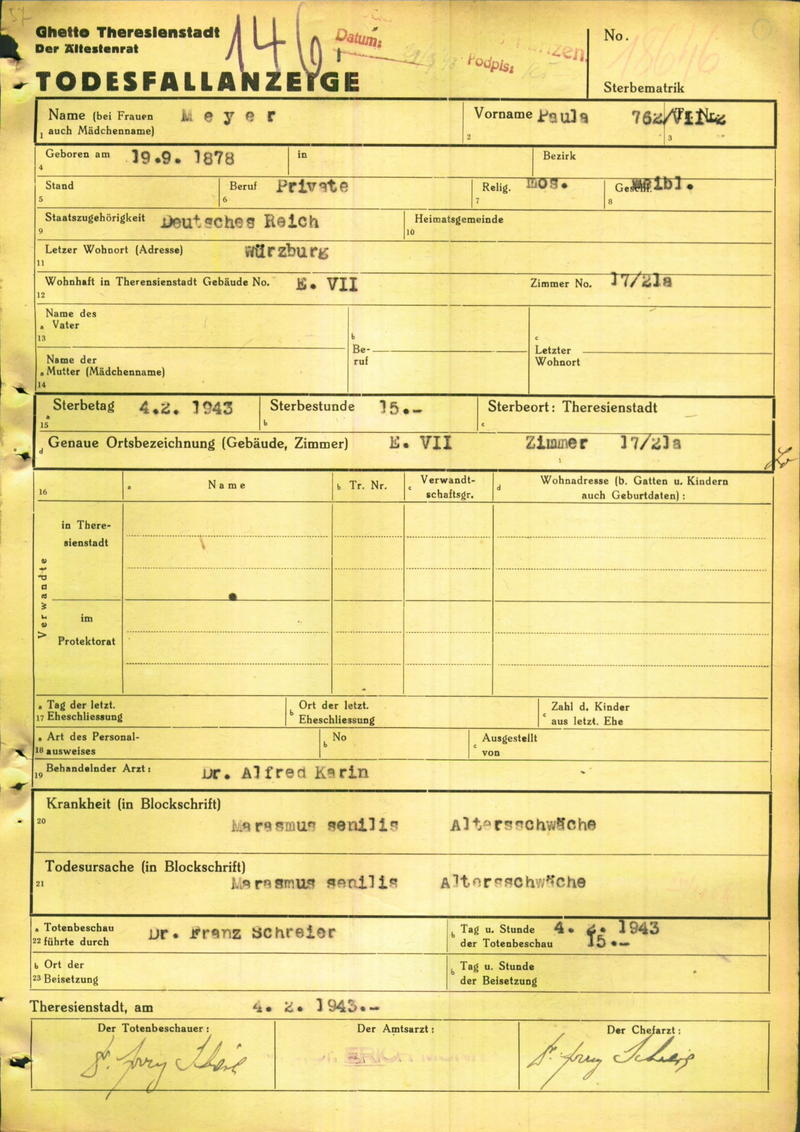 Ghetto Theresienstadt
Der Ältestenrat
TODESFALLANZEIGE
Datum:
Podpis:
No.
Sterbematrik
Name (bei Frauen auch Mädchenname) Meyer
1
Vorname Paula
2
3
Geboren am 19.9. 1878
4
in
Bezirk
Stand
5
Beruf Private
6
Relig. mos.
7
8
Staatszugehörigkeit Deutsches Reich
9
Heimatsgemeinde
10
Letzer Wohnort (Adresse) Würzburg
11
Wohnhaft in Therensienstadt Gebäude No. E. VII
12
Zimmer No. 17/21a
Name des
a Vater
13
Name der
a Mutter (Mädchenname)
14
b
Be-
ruf
c
Letzter
Wohnort
Sterbetag 4.2. 1943
a
15
Sterbestunde 15.-
b
Sterbeort: Theresienstadt
c
d Genaue Ortsbezeichnung (Gebäude, Zimmer) E. VII Zimmer 17/21a
16
a Name
b Tr. Nr.
c Verwandt-
schaftsgr.
d Wohnadresse (b. Gatten u. Kindern
auch Geburtdaten):
Verwandte
in There-
sienstadt
im
Protektorat
a Tag der letzt.
17 Eheschliessung
b Ort der letzt.
Eheschliessung
c Zahl d. Kinder
aus letzt. Ehe
a Art des Personal-
18 ausweises
b No
c Ausgestellt
von
19 Behandelnder Arzt: Dr. Alfred Karin
Krankheit (in Blockschrift)
20
Marasmus senilis Altersschwäche
Todesursache (in Blockschrift)
21
Marasmus senilis Altersschwäche
a Totenbeschau
22 führte durch Dr. Franz Schreier
b Tag u. Stunde 4. 2. 1943
der Totenbeschau 15.-
b Ort der
23 Beisetzung
b Tag u. Stunde
der Beisetzung
Theresienstadt, am 4. 2. 1943.-
Der Totenbeschauer:
Der Amtsarzt:
Der Chefarzt: